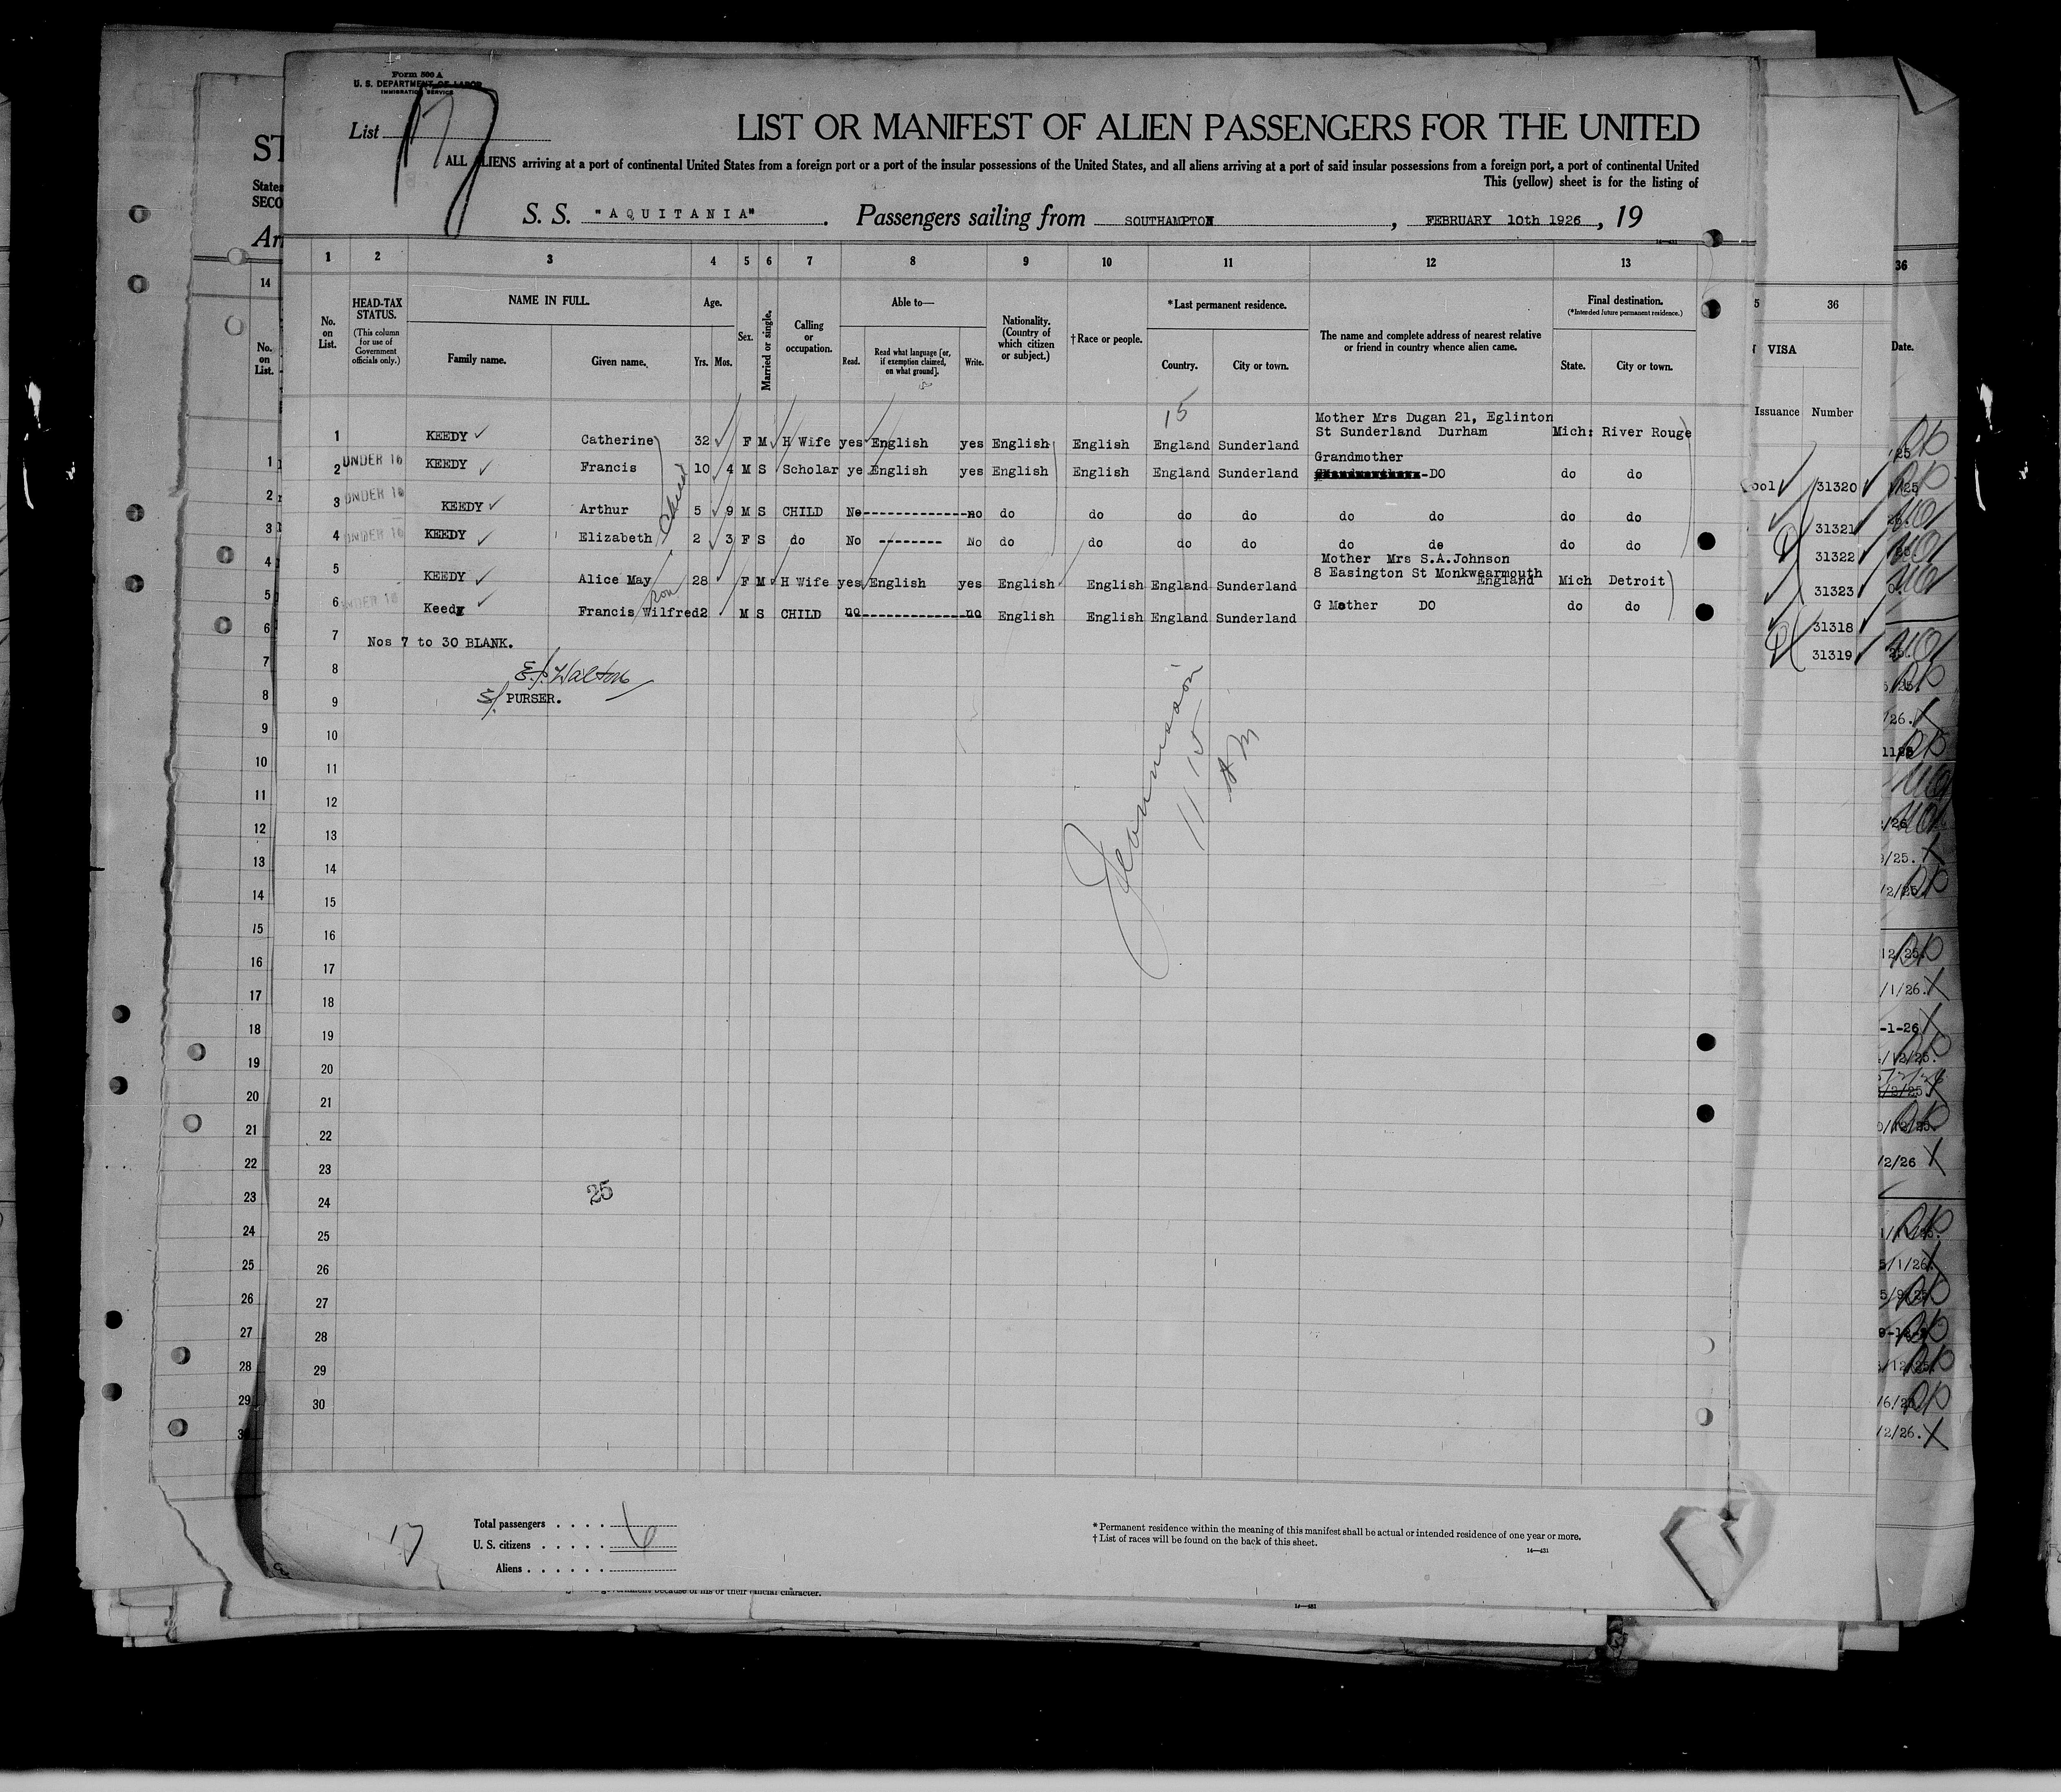 Form 500 A
U. S. DEPARTMENT OF LABOR
IMMIGRATION SERVICE
List 17
LIST OR MANIFEST OF ALIEN PASSENGERS FOR THE UNITED
ALL ALIENS arriving at a port of continental United States from a foreign port or a port of the insular possessions of the United States, and all aliens arriving at a port of said insular possessions from a foreign port, a port of continental United
This (yellow) sheet is for the listing of
S. S. "AQUITANIA". Passengers sailing from SOUTHAMPTON, FEBRUARY 10th 1926, 19
1 2 3 4 5 6 7 8 9 10 11 12 13
No. on List.
HEAD-TAX STATUS.
(This column for use of Government officials only.)
NAME IN FULL.
Family name. Given name.
Age.
Yrs. Mos.
Sex.
Married or single.
Calling or occupation.
Able to—
Read. Read what language [or, if exemption claimed, on what ground]. Write.
Nationality. (Country of which citizen or subject.)
†Race or people.
*Last permanent residence.
Country. City or town.
The name and complete address of nearest relative or friend in country whence alien came.
Final destination.
(*Intended future permanent residence.)
State. City or town.
15
Mother Mrs Dugan 21, Eglinton
1 KEEDY Catherine 32 F M H Wife yes English yes English English England Sunderland St Sunderland Durham Mich: River Rouge
Grandmother
2 UNDER 16 KEEDY Francis 10 4 M S Scholar ye English yes English English England Sunderland -DO do do
3 UNDER 16 KEEDY Arthur 5 9 M S CHILD No--------------no do do do do do do do do
4 UNDER 16 KEEDY Elizabeth 2 3 F S do No -------- No do do do do do de do do
Mother Mrs S.A.Johnson
5 KEEDY Alice May 28 F M H Wife yes English yes English English England Sunderland 8 Easington St Monkwearmouth England Mich Detroit
son
6 UNDER 16 Keedy Francis Wilfred 2 M S CHILD no--------------no English English England Sunderland G Mother DO do do
7 Nos 7 to 30 BLANK.
8 E.J. Walton
9 PURSER.
10
11
12
13
14
15
16
17
18
19
20
21
22
23
24 25
25
26
27
28
29
30
11 15 AM
17
Total passengers . . . . 6
U. S. citizens . . . . .
Aliens . . . . . .
* Permanent residence within the meaning of this manifest shall be actual or intended residence of one year or more.
† List of races will be found on the back of this sheet.
14—431
36
VISA
Issuance Number
31320
31321
31322
31323
31318
31319
36
Date.